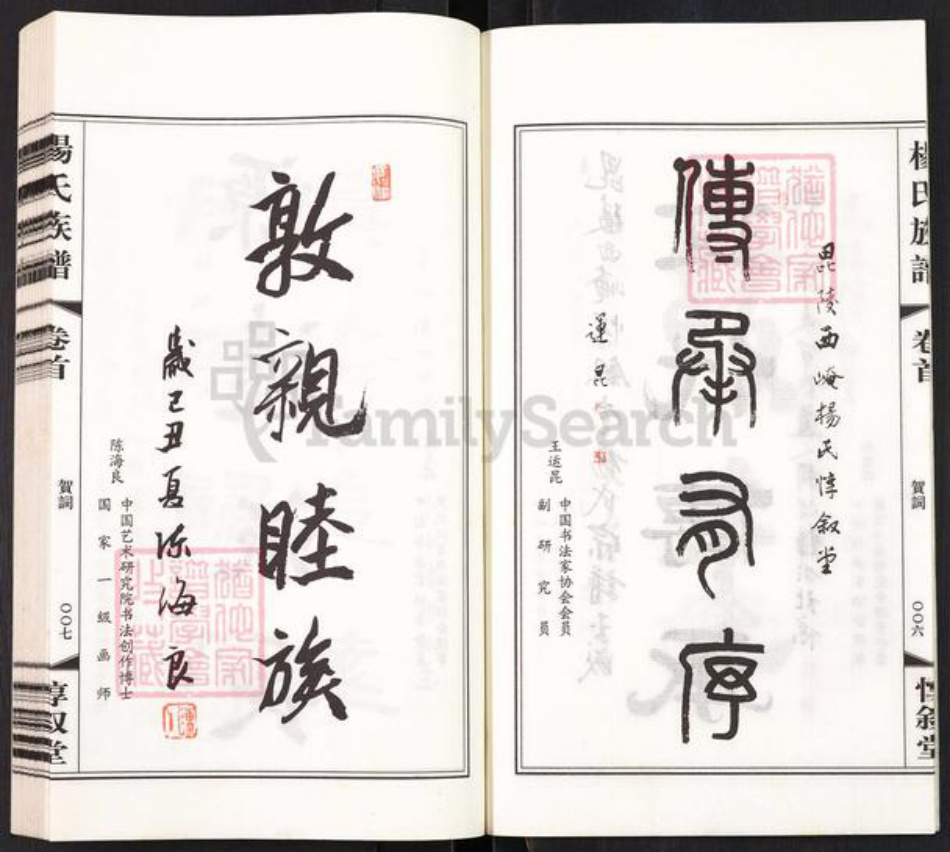 楊氏族譜
卷首
賀詞
〇〇六
惇敘堂
毘陵西崦楊氏惇叙堂
傳承有序
運昆
王运昆
中国书法家协会会员
副研究员
敦親睦族
歲己丑夏陈海良
陈海良
中国艺术研究院书法创作博士
国家一级画师
楊氏族譜
卷首
賀詞
〇〇七
惇叙堂
FamilySearch